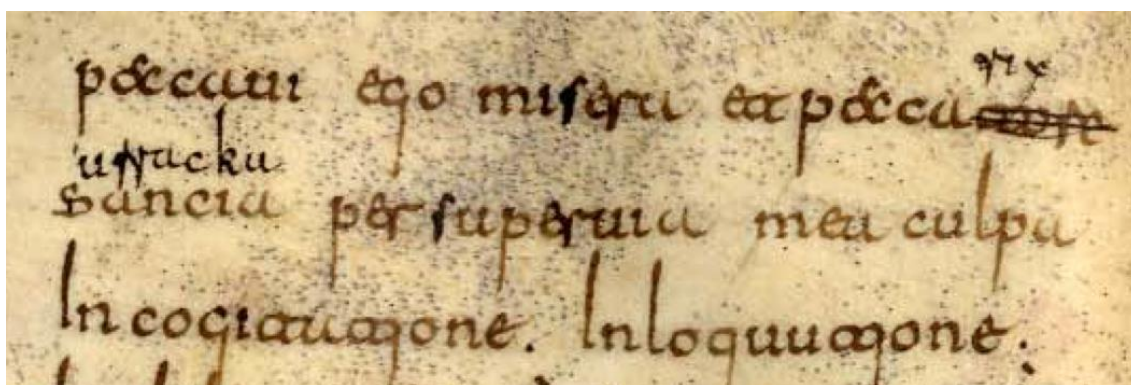 trix
peccaui ego misera et peccator
urracka
Sancia per superuia mea culpa
In cogitatione. In loquutione.